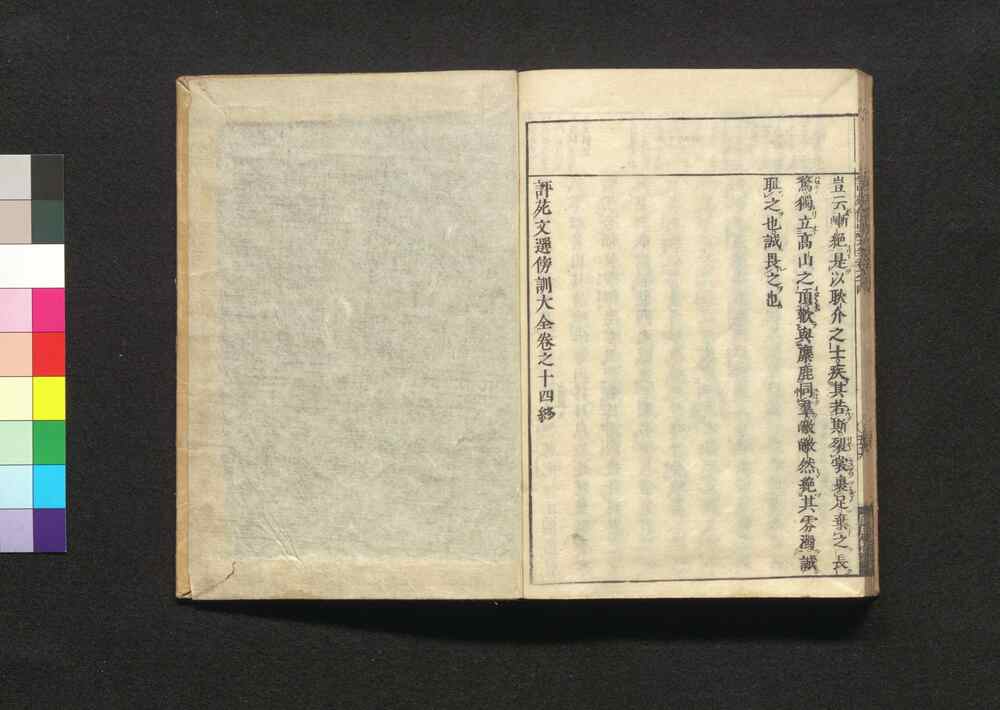 豈云嶃絶是以耿介之士疾其若斯裂裳裹足棄之長
騖獨立高山之頂歡與麋鹿同羣皦皦然絶其雰濁誠
耻之也誠畏之也
評苑文選傍訓大全卷之十四終